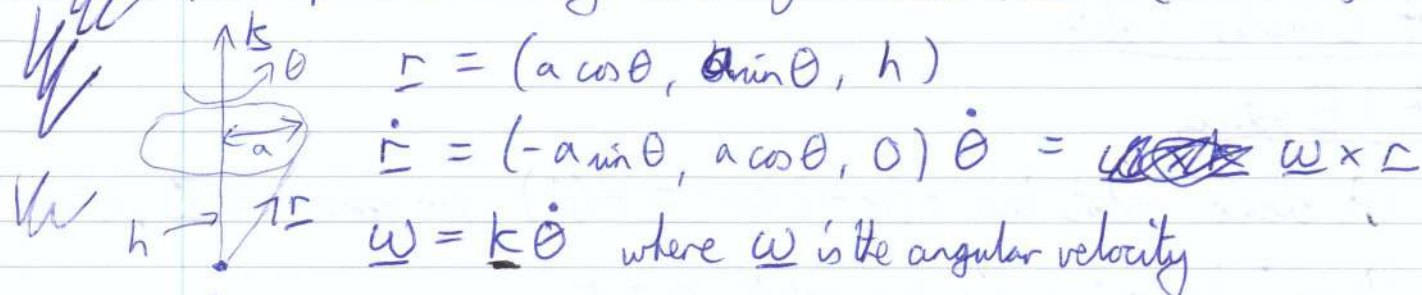 k
θ
a
h
r
r = (a cosθ, a sinθ, h)
ṙ = (-a sinθ, a cosθ, 0) θ̇ = ω × r
ω = k θ̇ where ω is the angular velocity